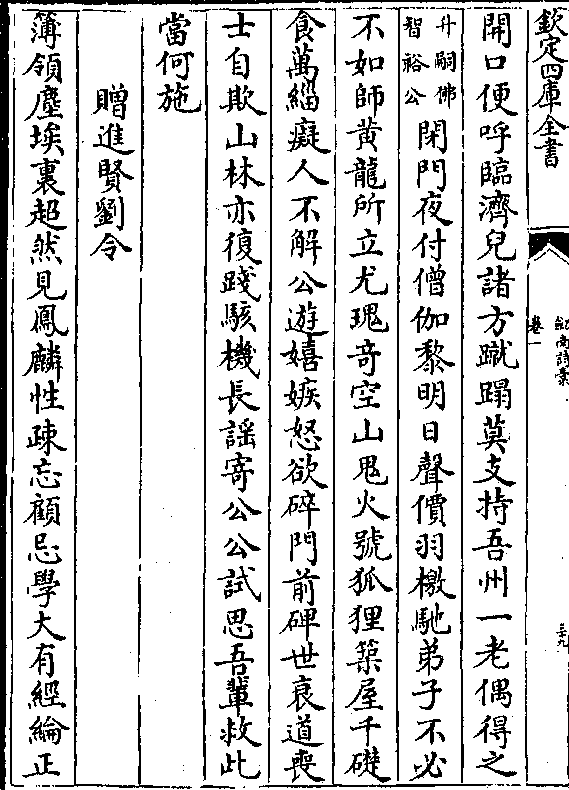 欽定四庫全書
劍南詩稾
卷一
三九
開口便呼臨濟兒諸方蹴蹋莫支持吾州一老偶得之
升嗣佛
智裕公
閉門夜付僧伽黎明日聲價羽檄馳弟子不必
不如師黄龍所立尤瑰竒空山鬼火號狐狸築屋千礎
食萬緇癡人不解公遊嬉嫉怒欲碎門前碑世衰道喪
士自欺山林亦復踐駭機長謡寄公公試思吾輩救此
當何施
贈進賢劉令
簿領塵埃裏超然見鳳麟性疎忘顧忌學大有經綸正